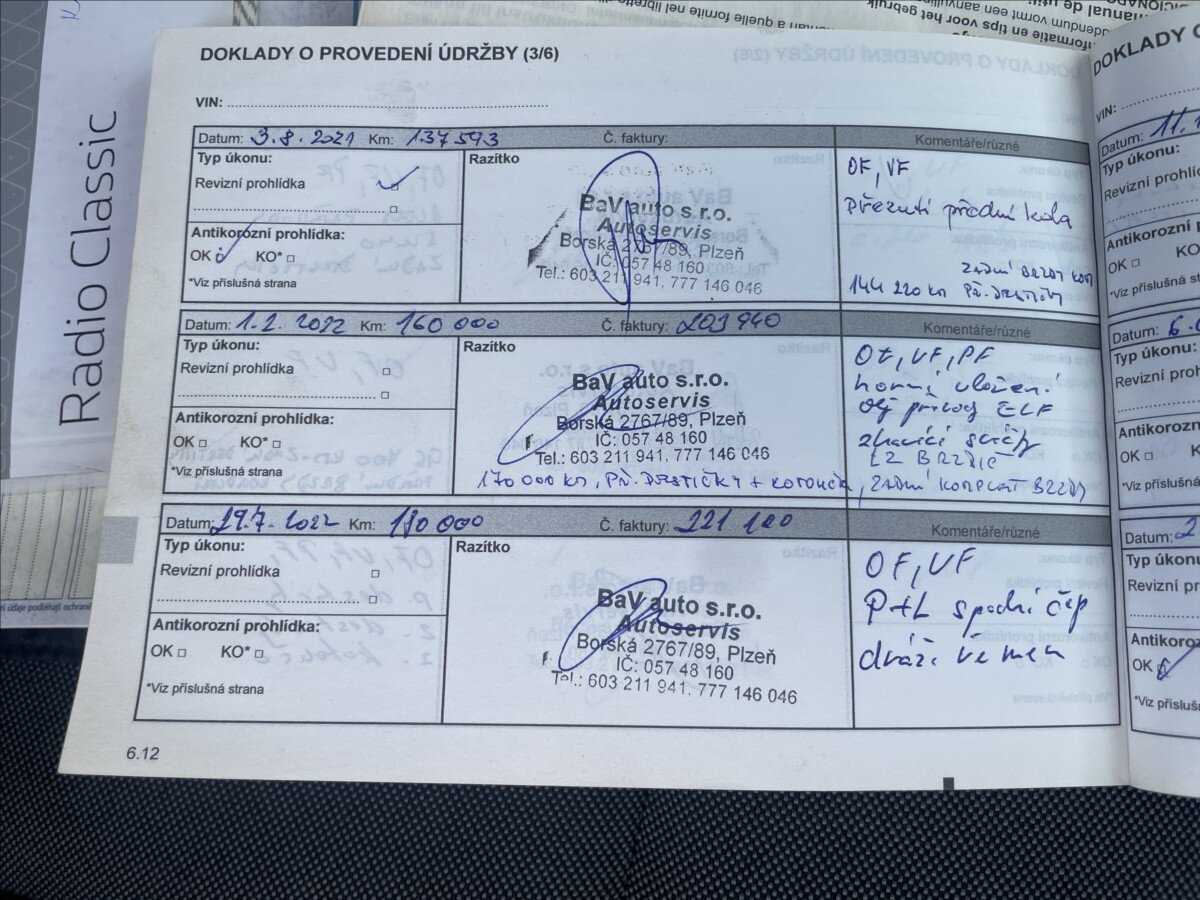 Radio Classic
manual de
informatie en tips voor het gebruik
DOKLADY O PROVEDENÍ ÚDRŽBY (3/6)
VIN:
Datum: 3.8.2021 Km: 137593 Č. faktury: Komentáře/různé
Typ úkonu:
Revizní prohlídka
Antikorozní prohlídka:
OK KO*
*Viz příslušná strana
Razítko
BaV auto s.r.o.
Autoservis
Borská 2767/89, Plzeň
IČ: 057 48 160
Tel.: 603 211 941, 777 146 046
OF, VF
Přezutí přední kola
ZADNÍ BRZDY KOM
144 220 KM PŘ. DESTIČKY
Datum: 1.2.2022 Km: 160 000 Č. faktury: 203940 Komentáře/různé
Typ úkonu:
Revizní prohlídka
Antikorozní prohlídka:
OK KO*
*Viz příslušná strana
Razítko
BaV auto s.r.o.
Autoservis
Borská 2767/89, Plzeň
IČ: 057 48 160
Tel.: 603 211 941, 777 146 046
170 000 KM, PŘ. DESTIČKY + KOTOUČE, ZADNÍ KOMPLET BRZDY
OF, VF, PF
horní uložení
olej přívod ELF
žhavící svíčky
LZ BRZDIČ
Datum: 29.7.2022 Km: 180 000 Č. faktury: 221 100 Komentáře/různé
Typ úkonu:
Revizní prohlídka
Antikorozní prohlídka:
OK KO*
*Viz příslušná strana
Razítko
BaV auto s.r.o.
Autoservis
Borská 2767/89, Plzeň
IČ: 057 48 160
Tel.: 603 211 941, 777 146 046
OF, VF
P+L spodní čep
dráž. řemen
6.12
DOKLADY O
VIN:
Datum: 11.
Typ úkonu:
Revizní prohlíd
Antikorozní
OK KO
*Viz příslušná
Datum: 6.
Typ úkonu:
Revizní prohlí
Antikorozní
OK
*Viz příslušná
Datum: 2
Typ úkonu
Revizní pro
Antikoroz
OK
*Viz přísluš